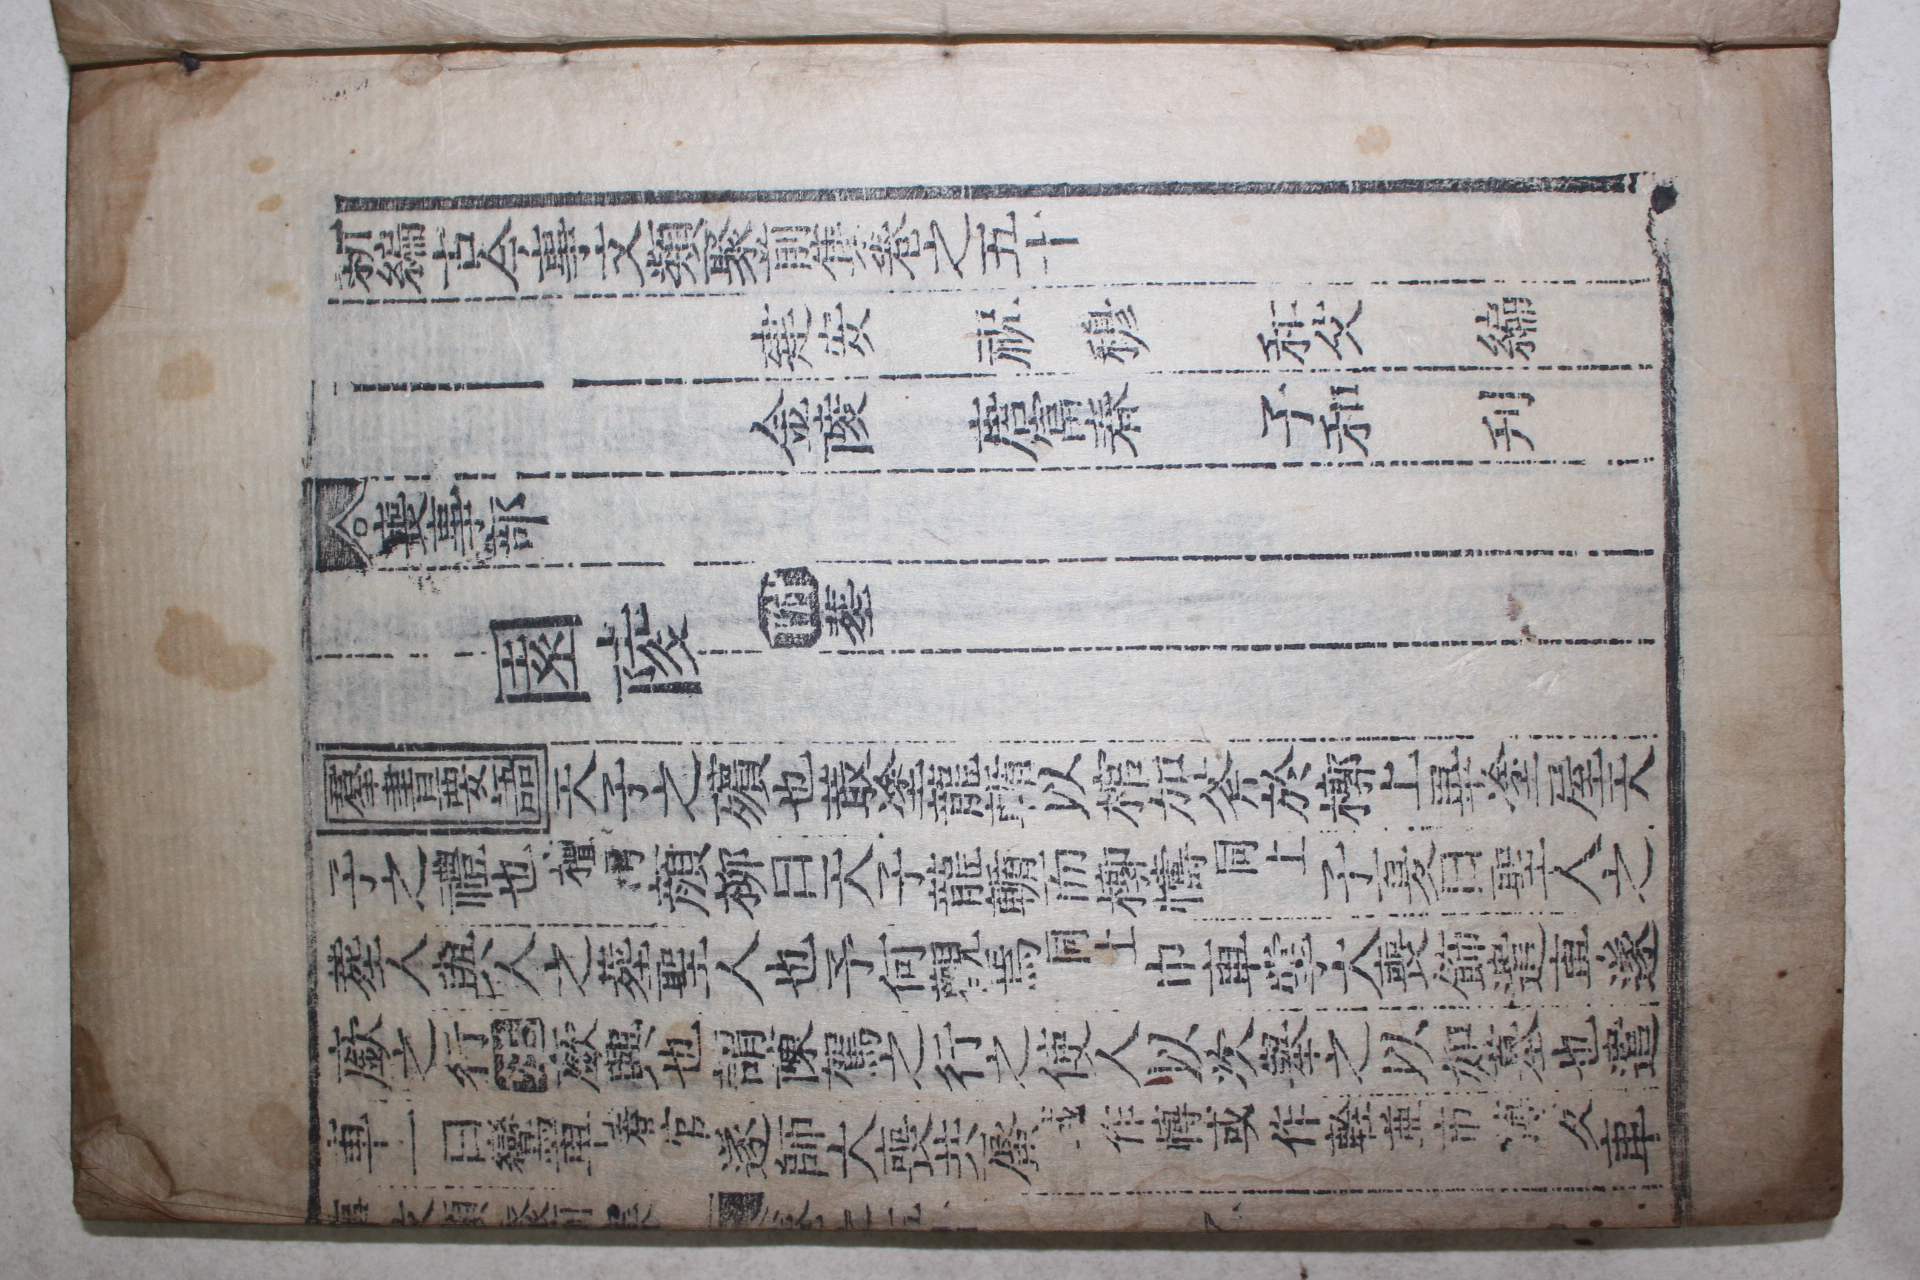 新編古今事文類聚前集卷之五十
建安 祝 穆 和父 編
金陵 唐富春 子和 刋
喪事部
園陵
附葬
羣書要語天子之殯也菆塗龍輴以椁加斧於槨上畢塗屋天
子之禮也檀弓顔柳曰天子龍輴而槨幬同上子夏曰聖人之
葬人與人之葬聖人也子何觀焉同上巾車掌大喪飾遣車遂
廞之行之廞興也謂陳駕之行之使人以次舉之以如墓也遣
車一曰鸞車春官遂師大喪共蜃或作慱或作輇並市專反車